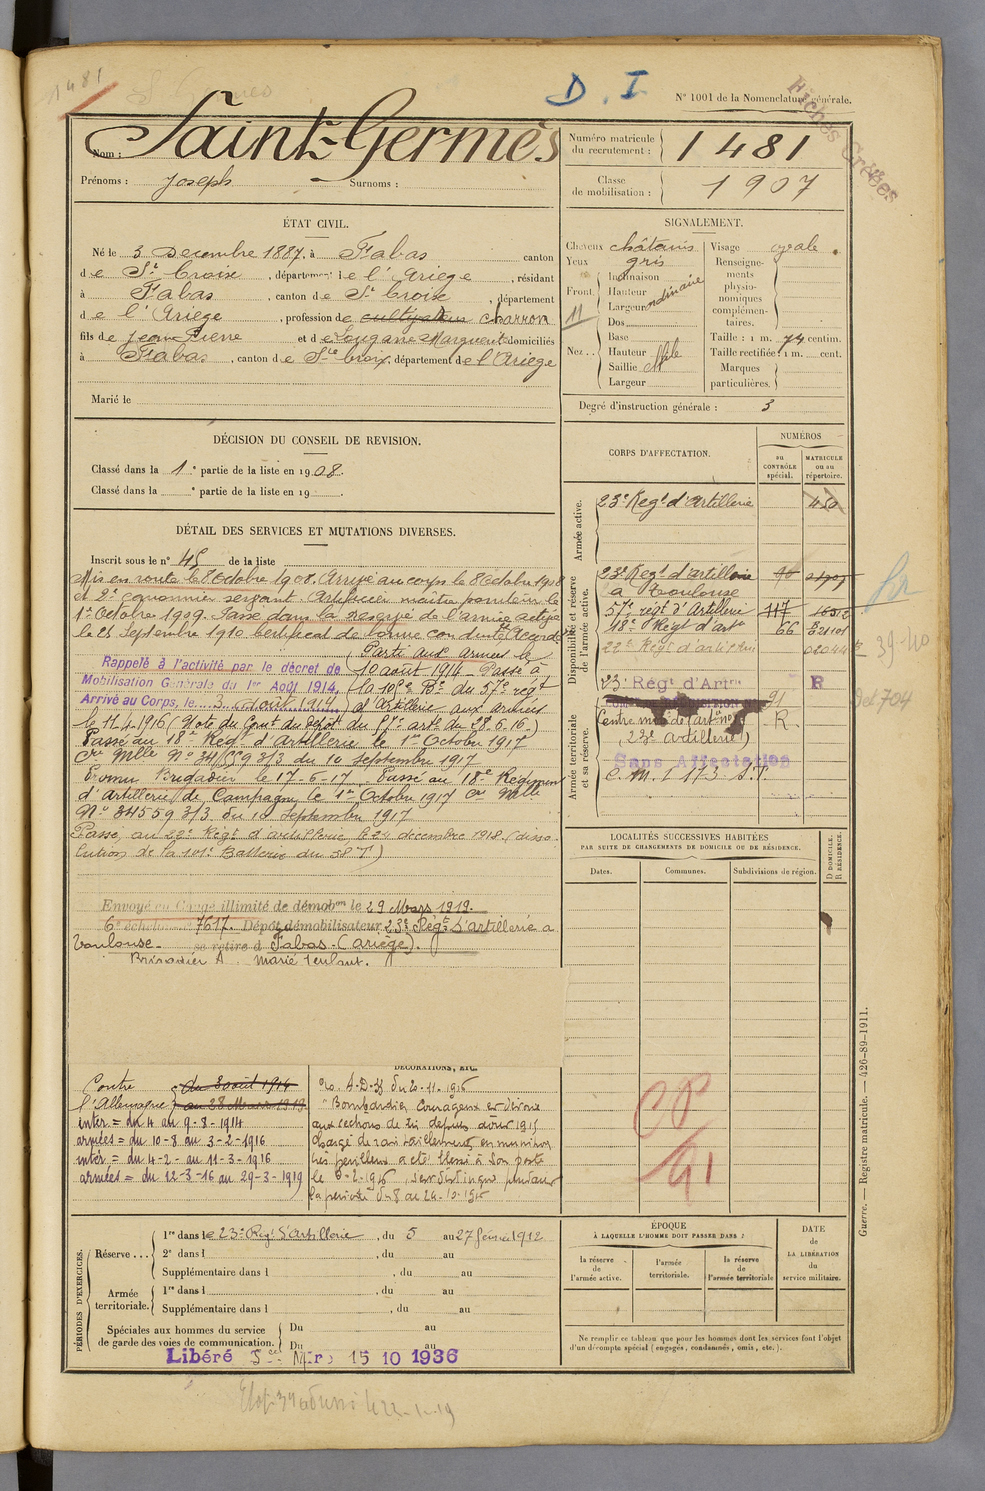 1481
D. I
N° 1001 de la Nomenclature générale.
Fiches Créées
Nom : Saint-Germès
Prénoms : Joseph Surnoms :
Numéro matricule du recrutement : 1481
Classe de mobilisation : 1907
ÉTAT CIVIL.
Né le 3 Decembre 1887, à Fabas canton
de Ste Croix, département de l'Ariege, résidant
à Fabas, canton de Ste Croix, département
de l'Ariege, profession de cultivateur charron
fils de Jean Pierre et de Lougarre Marguerite domiciliés
à Fabas, canton de Ste Croix, département de l'Ariege
Marié le
SIGNALEMENT.
Cheveux châtains
Yeux gris
Front
Inclinaison
Hauteur
Largeur ordinaire
Dos
Nez
Base
Hauteur
Saillie
Largeur
11
Visage ovale
Renseignements physionomiques complémentaires.
Taille : 1 m. 74 centim.
Taille rectifiée : 1 m. cent.
Marques particulières.
Degré d'instruction générale : 3
DÉCISION DU CONSEIL DE REVISION.
Classé dans la 1e partie de la liste en 1908.
Classé dans la e partie de la liste en 19
DÉTAIL DES SERVICES ET MUTATIONS DIVERSES.
Inscrit sous le n° 45 de la liste
Mis en route le 8 Octobre 1908. Arrivé au corps le 8 Octobre 1908
et 2e canonnier servant. Artificier maître pointeur le
1er Octobre 1909. Passé dans la Réserve de l'armée active
le 25 Septembre 1910 Certificat de bonne conduite Accordé
Parti aux armées le
Rappelé à l'activité par le décret de
10 août 1914 - Passé à
Mobilisation Générale du 1er Août 1914.
la 105e Bie du 57e régt
Arrivé au Corps, le 3 août 1914
d'Artillerie aux armées
le 11.4.1916 (Note du Comt du Dépôt du 57e artie du 28.6.16)
Passé au 18e Régt d'Artillerie le 1er Octobre 1917
N° 34559 3/3 du 10 septembre 1917
Nommé Brigadier le 17-6-17. Passé au 18e Régiment
d'Artillerie de Campagne le 1er Octobre 1917
N° 34559 3/3 du 10 Septembre 1917
Passé au 22e Régt d'artillerie le 24 décembre 1918 (disso-
lution de la 101e Batterie du 58 T)
Envoyé en Congé illimité de démobon le 29 Mars 1919.
6e échelon n° 7617. Dépôt démobilisateur 23e Régt d'artillerie à
Toulouse se retire à Fabas (Ariège).
Brigadier A. marié 1 enfant.
CORPS D'AFFECTATION.
NUMÉROS
au CONTRÔLE spécial.
MATRICULE ou au répertoire.
Armée active.
23e Régt d'Artillerie
Disponibilité et réserve de l'armée active.
23e Régt d'artillerie
à Toulouse
57e régt d'Artillerie 117
18e Régt d'artie 66
22e Régt d'artillerie
39-40
23e Régt d'Artie R
Armée territoriale et sa réserve.
91
R.
(23e artillerie)
Sans Affectation
LOCALITÉS SUCCESSIVES HABITÉES
PAR SUITE DE CHANGEMENTS DE DOMICILE OU DE RÉSIDENCE.
Dates.
Communes.
Subdivisions de région.
D DOMICILE. R RÉSIDENCE.
CP
91
Contre l'Allemagne
du 3 août 1914
au 28 Mars 1919
intér = du 4 au 9-8-1914
armées = du 10-8 au 3-2-1916
intér = du 4-2- au 11-3-1916
armées = du 12-3-16 au 29-3-1919
DÉCORATIONS, ETC.
"Bombardier courageux et dévoué
aux sections de depuis août 1915
chargé de ravitaillements en munitions
très périlleux a été blessé à son poste
le 3-2-1916, s'est distingué pendant
la période du 8 au 24-10-1916
PÉRIODES D'EXERCICES.
Réserve
1re dans le 23e Régt d'Artillerie, du 5 au 27 février 1912
2e dans l , du au
Supplémentaire dans l , du au
Armée territoriale.
1re dans l , du au
Supplémentaire dans l , du au
Spéciales aux hommes du service de garde des voies de communication.
Du au
Du au
Libéré 15 10 1936
ÉPOQUE
À LAQUELLE L'HOMME DOIT PASSER DANS :
la réserve de l'armée active.
l'armée territoriale.
la réserve de l'armée territoriale
DATE DE LA LIBÉRATION du service militaire.
Ne remplir ce tableau que pour les hommes dont les services font l'objet
d'un décompte spécial (engagés, condamnés, omis, etc.).
Guerre. — Registre matricule. — 426-89-1911.